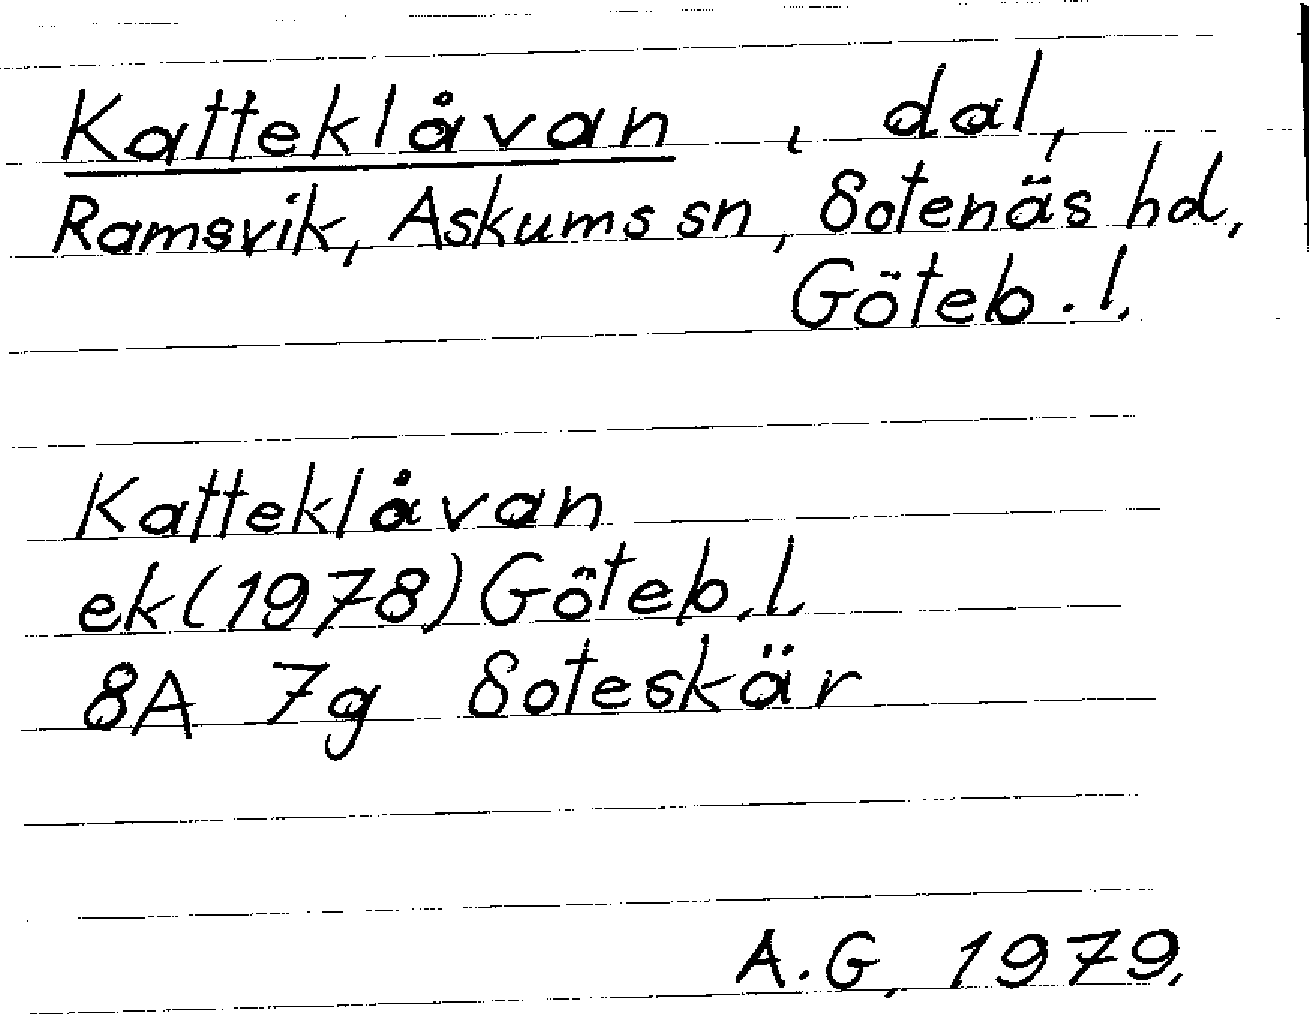 Katteklåvan , dal,
Ramsvik, Askums sn, Sotenäs hd,
Göteb. l.
Katteklåvan
ek (1978) Göteb. l.
8A 7g Soteskär
A.G, 1979.